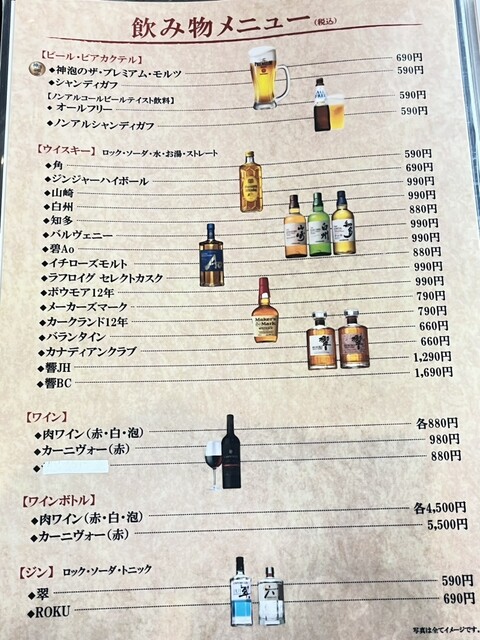 飲み物メニュー(税込)
【ビール・ビアカクテル】
◆神泡のザ・プレミアム・モルツ 690円
◆シャンディガフ 590円
【ノンアルコールビールテイスト飲料】
◆オールフリー 590円
◆ノンアルシャンディガフ 590円
【ウイスキー】 ロック・ソーダ・水・お湯・ストレート
◆角 590円
◆ジンジャーハイボール 690円
◆山崎 990円
◆白州 990円
◆知多 880円
◆バルヴェニー 990円
◆碧Ao 990円
◆イチローズモルト 880円
◆ラフロイグ セレクトカスク 990円
◆ボウモア12年 990円
◆メーカーズマーク 790円
◆カークランド12年 790円
◆バランタイン 660円
◆カナディアンクラブ 660円
◆響JH 1,290円
◆響BC 1,690円
【ワイン】
◆肉ワイン(赤・白・泡) 各880円
◆カーニヴォー(赤) 980円
◆ 880円
【ワインボトル】
◆肉ワイン(赤・白・泡) 各4,500円
◆カーニヴォー(赤) 5,500円
【ジン】 ロック・ソーダ・トニック
◆翠 590円
◆ROKU 690円
写真は全てイメージです。